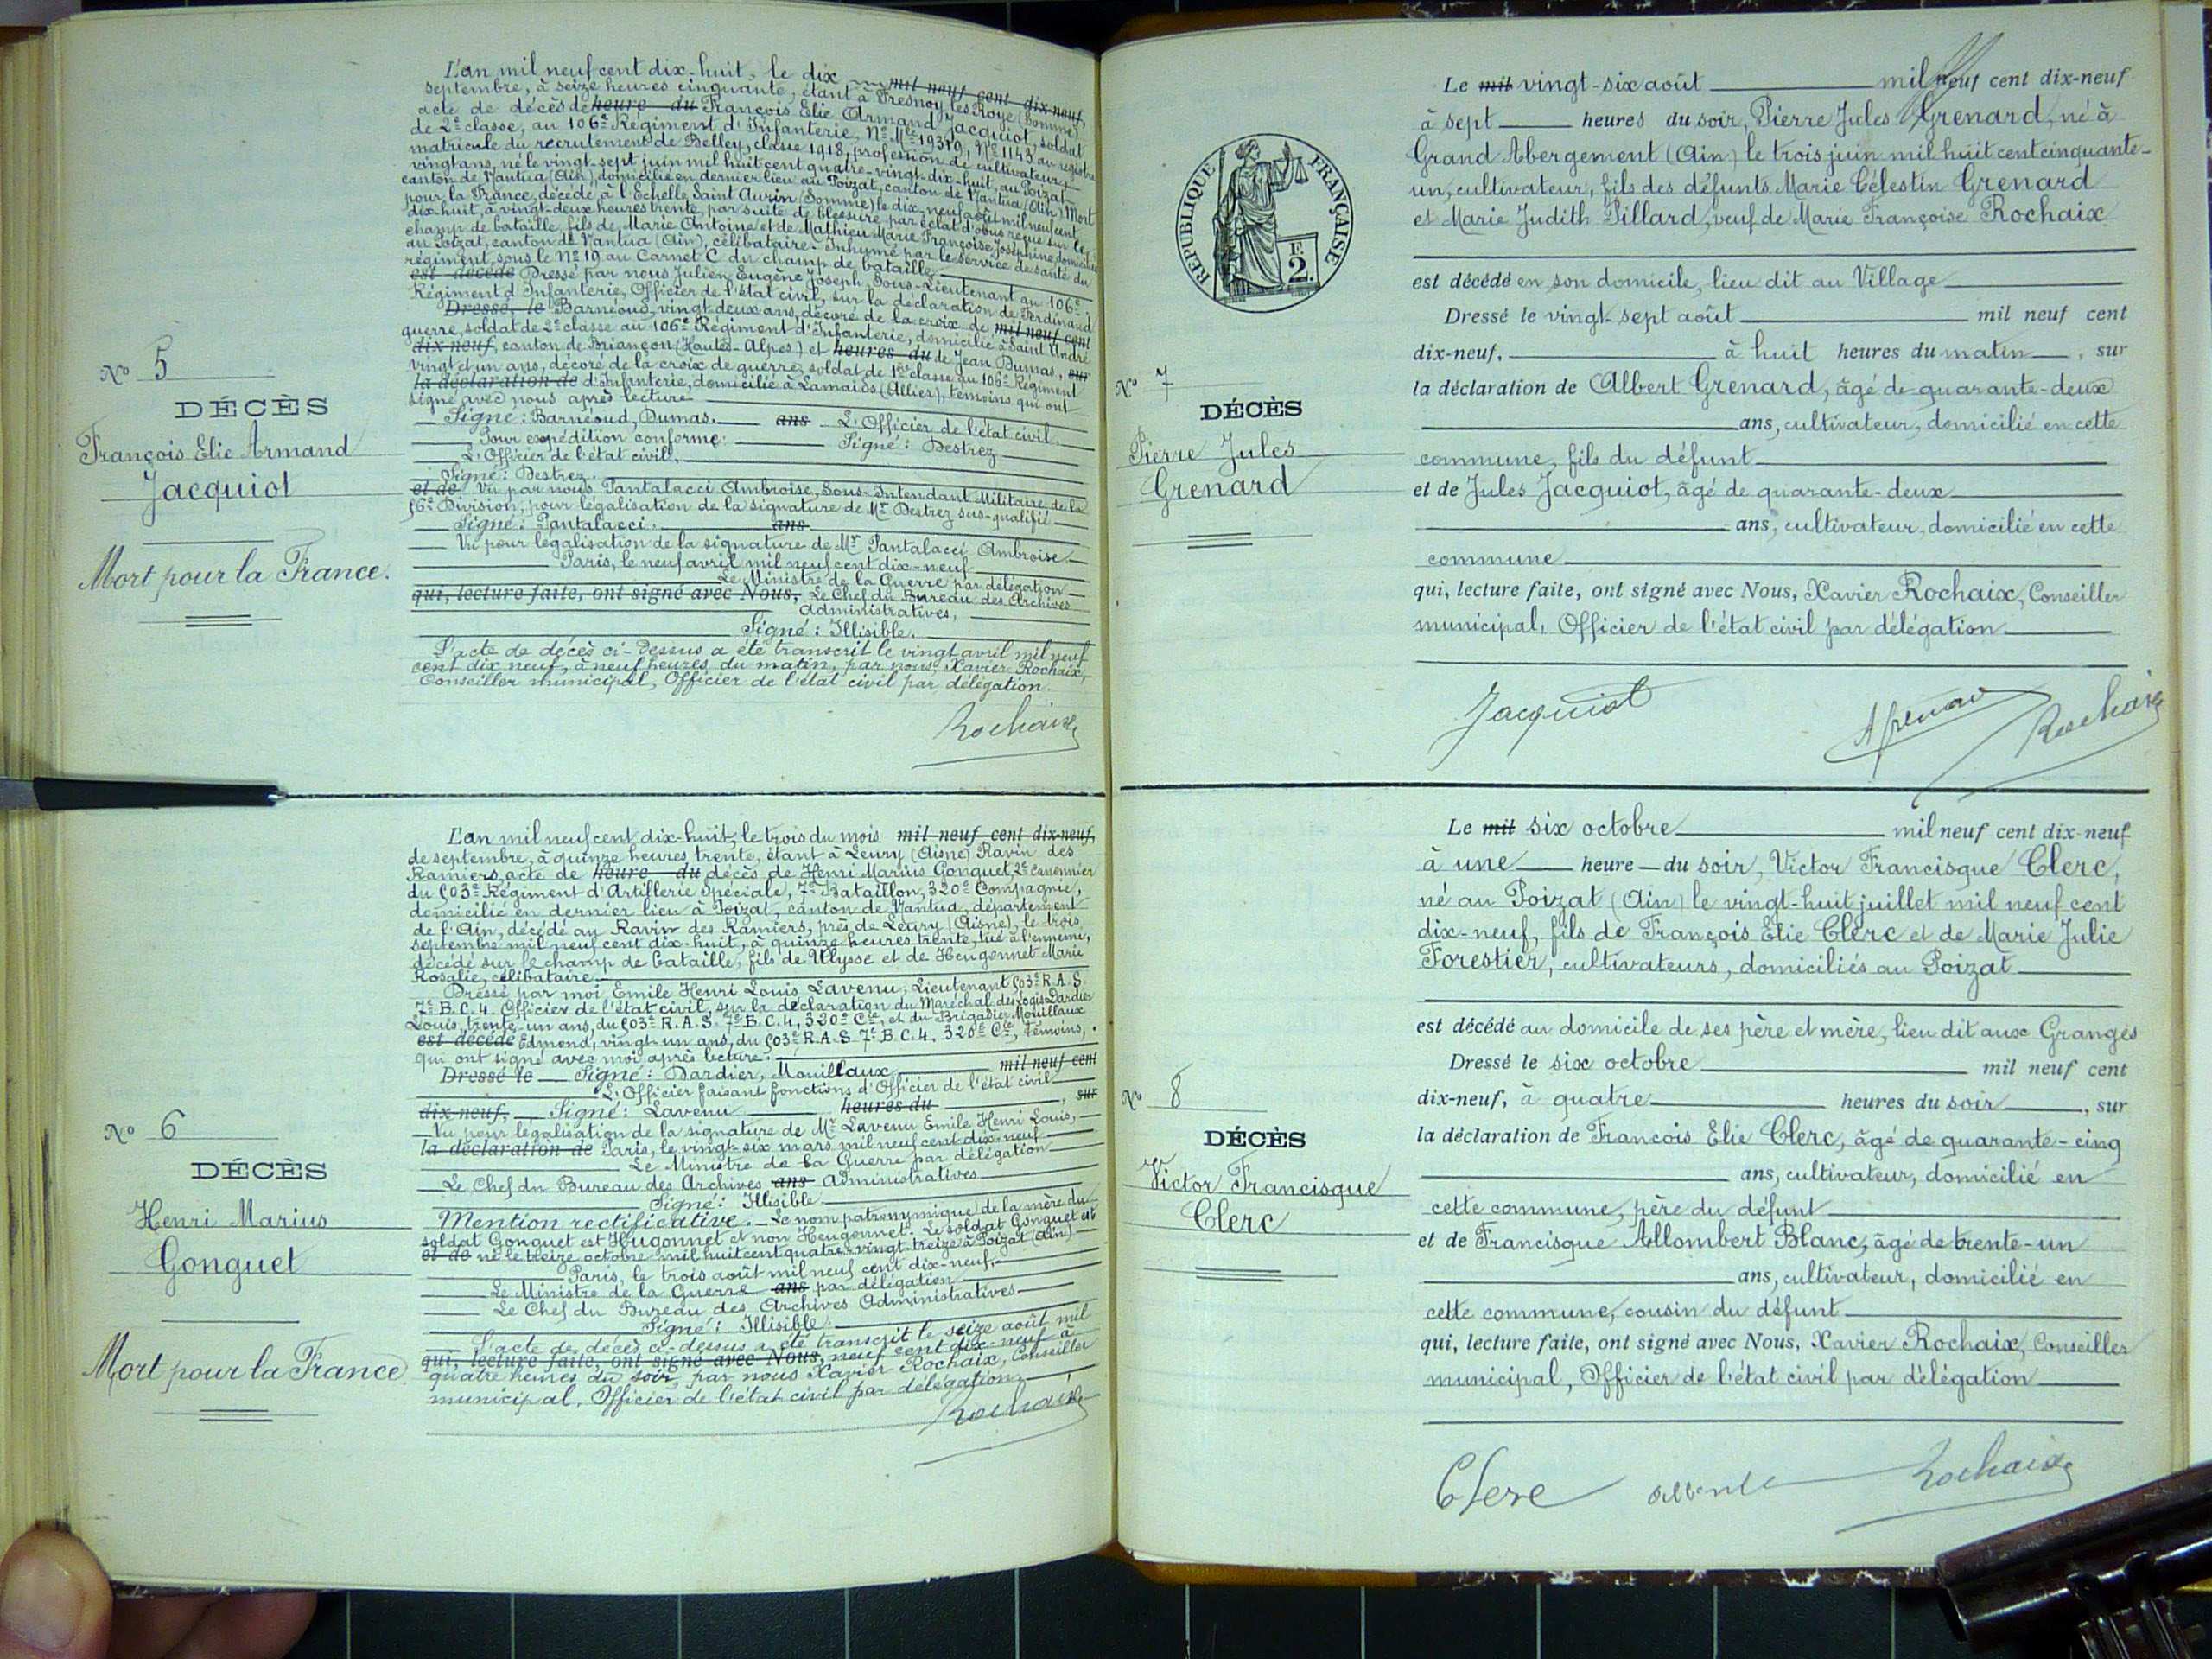 L'an mil neuf cent dix-huit, le dix mil neuf cent dix-neuf,
septembre, à seize heures cinquante, étant à Fresnoy les Roye (Somme)
acte de décès de heure du François Elie Armand Jacquiot, soldat
de 2e classe, au 106e Régiment d'Infanterie, No Mle 19319, No 1143 au registre
matricule du recrutement de Belley, classe 1918, profession de cultivateur,
vingt ans, né le vingt-sept juin mil huit cent quatre-vingt-dix-huit, au Poizat
canton de Nantua (Ain), domicilié en dernier lieu au Poizat, canton de Nantua (Ain) Mort
pour la France, décédé à l'Echelle Saint Aurin (Somme) le dix-neuf août mil neuf cent
dix-huit, à vingt-deux heures trente, par suite de blessure par éclat d'obus reçue sur le
champ de bataille, fils de Marie Antoine et de Mathieu Marie Françoise Joséphine, domiciliés
au Poizat, canton de Nantua (Ain), célibataire. Inhumé par le service de santé du
régiment, sous le No 19 au Carnet C du champ de bataille.
est décédé Dressé par nous Julien Eugène Joseph, Sous-Lieutenant au 106e
Régiment d'Infanterie, Officier de l'état civil, sur la déclaration de Ferdinand
Dressé, le Barnéoud, vingt-deux ans, décoré de la croix de mil neuf cent
guerre, soldat de 2e classe au 106e Régiment d'Infanterie, domicilié à Saint André
dix-neuf, canton de Briançon (Hautes-Alpes) et heures du de Jean Dumas, sur
vingt et un ans, décoré de la croix de guerre, soldat de 1ère classe au 106e Régiment
la déclaration de d'Infanterie, domicilié à Lamaids (Allier), témoins qui ont
signé avec nous après lecture
Signé: Barnéoud, Dumas. ans L'Officier de l'état civil.
Pour expédition conforme: Signé: Destrez
L'Officier de l'état civil.
Signé: Destrez.
et de Vu par nous Pantalacci Ambroise, Sous-Intendant Militaire de la
56e Division, pour légalisation de la signature de Mr Destrez sus-qualifié
Signé: Pantalacci. ans
Vu pour légalisation de la signature de Mr Pantalacci Ambroise.
Paris, le neuf avril mil neuf cent dix-neuf
Le Ministre de la Guerre par délégation
qui, lecture faite, ont signé avec Nous, Le Chef du Bureau des Archives
administratives,
Signé: Illisible.
L'acte de décès ci-dessus a été transcrit le vingt avril mil neuf
cent dix neuf, à neuf heures du matin, par nous Xavier Rochaix,
Conseiller municipal, Officier de l'état civil par délégation.
Rochaix
No 5
DÉCÈS
François Elie Armand
Jacquiot
Mort pour la France.
L'an mil neuf cent dix-huit, le trois du mois mil neuf cent dix-neuf,
de septembre, à quinze heures trente, étant à Leury (Aisne) Ravin des
Ramiers, acte de heure du décès de Henri Marius Gonguet, 2e canonnier
du 503e Régiment d'Artillerie Spéciale, 7e Bataillon, 320e Compagnie,
domicilié en dernier lieu à Poizat, canton de Nantua, département
de l'Ain, décédé au Ravin des Ramiers, près de Leury (Aisne), le trois
septembre mil neuf cent dix-huit, à quinze heures trente, tué à l'ennemi,
décédé sur le champ de bataille, fils de Ulysse et de Heugonnet Marie
Rosalie, célibataire
Dressé par moi Emile Henri Louis Lavenu, Lieutenant 503e R.A.S.
7e B.C.4. Officier de l'état civil, sur la déclaration du Maréchal des Logis Dardier
Louis, trente-un ans, du 503e R.A.S. 7e B.C.4, 320e Cie, et du Brigadier Mouillaux
est décédé Edmond, vingt-un ans, du 503e R.A.S 7e B.C.4. 320e Cie, témoins,
qui ont signé avec moi après lecture.
Dressé le Signé: Dardier, Mouillaux mil neuf cent
L'Officier faisant fonctions d'Officier de l'état civil
dix-neuf, Signé: Lavenu heures du , sur
Vu pour légalisation de la signature de Mr Lavenu Emile Henri Louis,
la déclaration de Paris, le vingt-six mars mil neuf cent dix-neuf
Le Ministre de la Guerre par délégation
Le Chef du Bureau des Archives ans Administratives
Signé: Illisible
Mention rectificative. Le nom patronymique de la mère du
soldat Gonguet est Hugonnet et non Heugonnet. Le soldat Gonguet est
et de né le treize octobre mil huit cent quatre-vingt-treize à Poizat (Ain)
Paris, le trois août mil neuf cent dix-neuf,
Le Ministre de la Guerre ans par délégation
Le Chef du Bureau des Archives Administratives
Signé: Illisible
L'acte de décès ci-dessus a été transcrit le seize août mil
qui, lecture faite, ont signé avec Nous, neuf cent dix-neuf à
quatre heures du soir, par nous Xavier Rochaix, Conseiller
municipal, Officier de l'état civil par délégation
Rochaix
No 6
DÉCÈS
Henri Marius
Gonguet
Mort pour la France
RÉPUBLIQUE FRANÇAISE
2
Le mil vingt-six août mil neuf cent dix-neuf
à sept heures du soir, Pierre Jules Grenard, né à
Grand Abergement (Ain) le trois juin mil huit cent cinquante-
un, cultivateur, fils des défunts Marie Célestin Grenard
et Marie Judith Pillard, veuf de Marie Françoise Rochaix
est décédé en son domicile, lieu dit au Village
Dressé le vingt-sept août mil neuf cent
dix-neuf, à huit heures du matin, sur
la déclaration de Albert Grenard, âgé de quarante-deux
ans, cultivateur, domicilié en cette
commune, fils du défunt
et de Jules Jacquiot, âgé de quarante-deux
ans, cultivateur, domicilié en cette
commune
qui, lecture faite, ont signé avec Nous, Xavier Rochaix, Conseiller
municipal, Officier de l'état civil par délégation
Jacquiot Rochaix
No 7
DÉCÈS
Pierre Jules
Grenard
Le mil six octobre mil neuf cent dix-neuf
à une heure du soir, Victor Francisque Clerc,
né au Poizat (Ain) le vingt-huit juillet mil neuf cent
dix-neuf, fils de François Elie Clerc et de Marie Julie
Forestier, cultivateurs, domiciliés au Poizat
est décédé au domicile de ses père et mère, lieu dit aux Granges
Dressé le six octobre mil neuf cent
dix-neuf, à quatre heures du soir, sur
la déclaration de François Elie Clerc, âgé de quarante-cinq
ans, cultivateur, domicilié en
cette commune, père du défunt
et de Francisque Allombert Blanc, âgé de trente-un
ans, cultivateur, domicilié en
cette commune, cousin du défunt
qui, lecture faite, ont signé avec Nous, Xavier Rochaix, Conseiller
municipal, Officier de l'état civil par délégation
Clerc Rochaix
No 8
DÉCÈS
Victor Francisque
Clerc